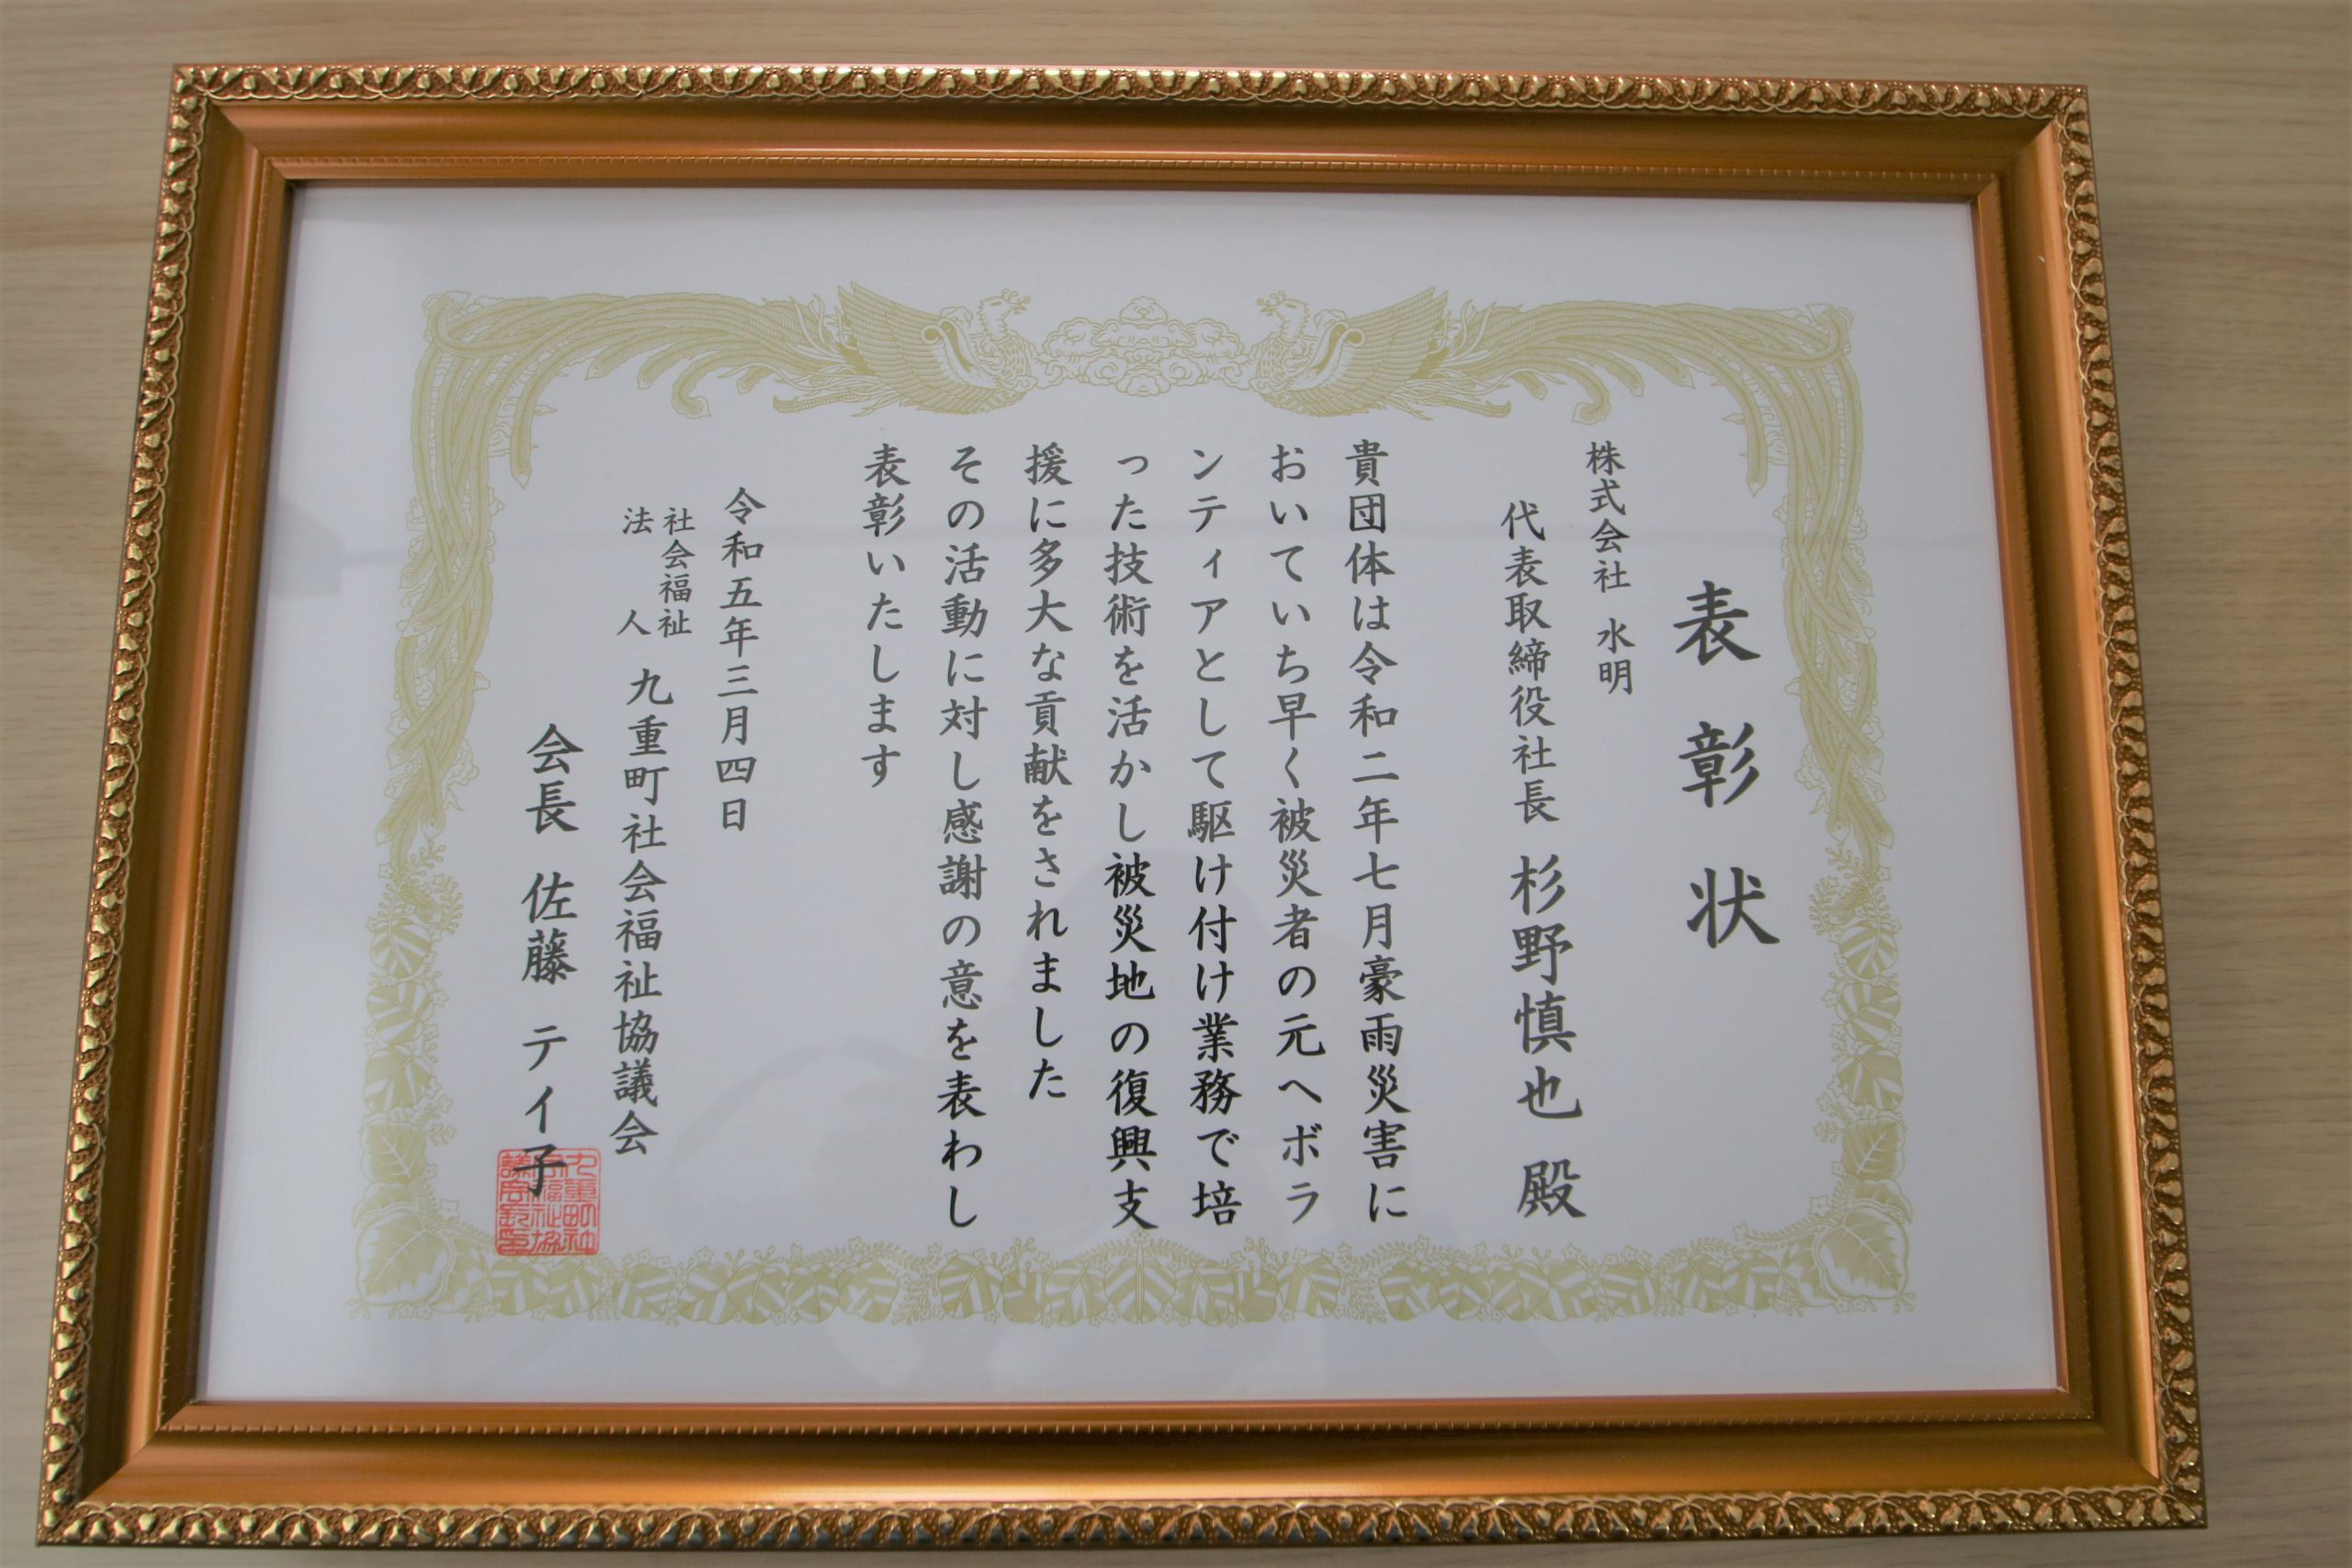 表彰状
株式会社 水明
代表取締役社長 杉野慎也 殿
貴団体は令和二年七月豪雨災害に
おいていち早く被災者の元へボラ
ンティアとして駆け付け業務で培
った技術を活かし被災地の復興支
援に多大な貢献をされました
その活動に対し感謝の意を表わし
表彰いたします
令和五年三月四日
社会福祉
法人
九重町社会福祉協議会
会長 佐藤 テイ子
九重町社
会福祉協
議会剣印